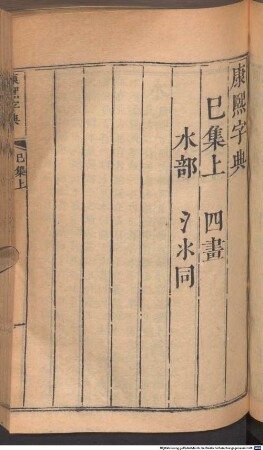 康熙字典
巳集上　四畫
水部　氵氺同
康熙字典
巳集上